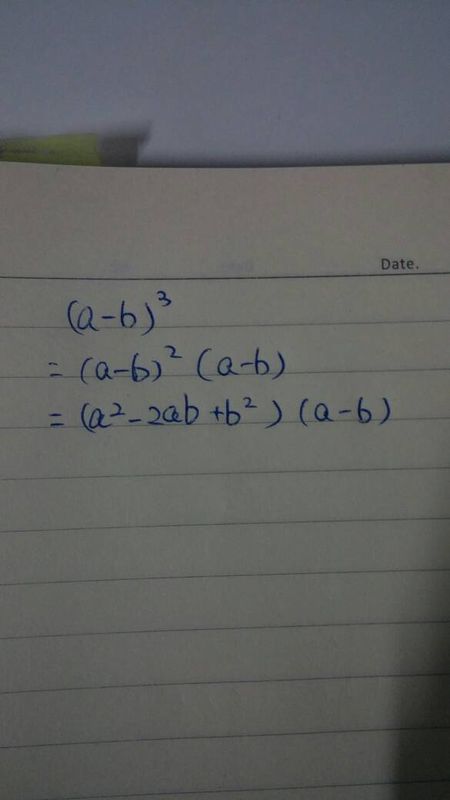 Date.
(a-b)³
= (a-b)² (a-b)
= (a²-2ab+b²) (a-b)